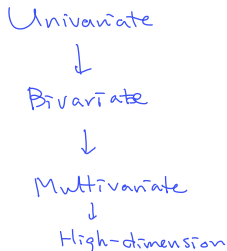 Univariate
↓
Bivariate
↓
Multivariate
↓
High-dimension